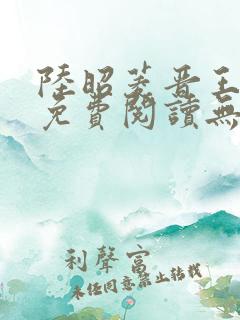 陸昭菱晋王
免費閱讀無
利聲富
未经同意禁止转载